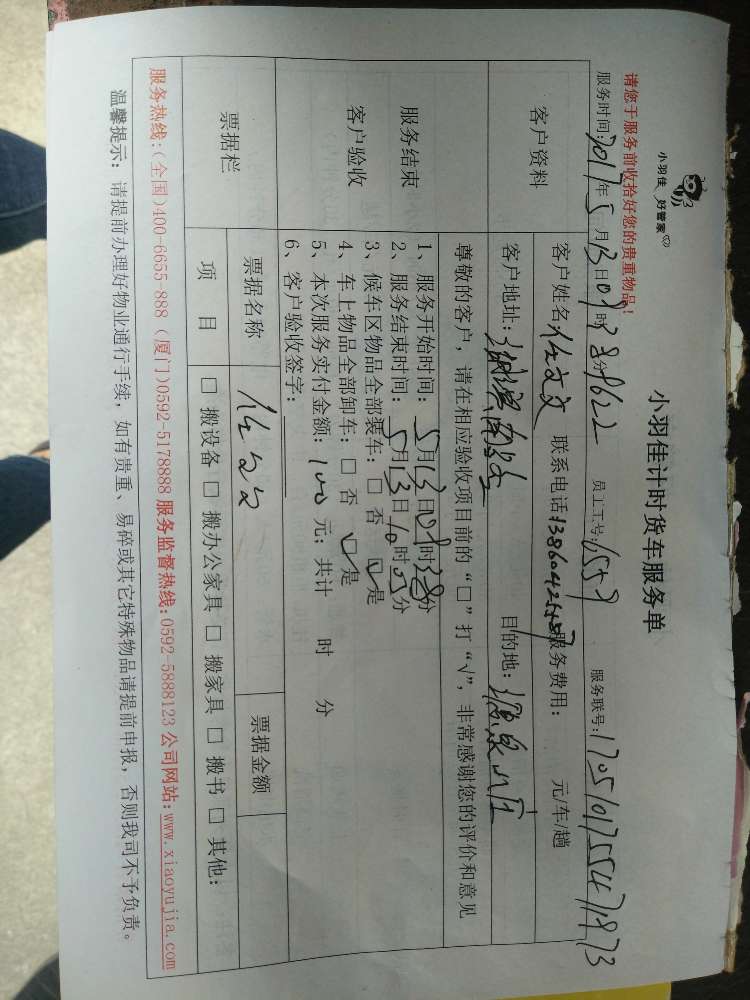 小羽佳 好管家
小羽佳计时货车服务单
请您于服务前收拾好您的贵重物品!
服务时间:2017年5月13日09时38分 员工工号: 服务联号:
客户资料
客户姓名 任文文 联系电话: 服务费用: 元/车/趟
客户地址: 目的地:
尊敬的客户,请在相应验收项目前的“□”打“√”,非常感谢您的评价和意见
服务结束
客户验收
1、服务开始时间: 5月13日09时38分
2、服务结束时间: 5月13日10时05分
3、候车区物品全部装车:□ 否 ☑是
4、车上物品全部卸车:□ 否 ☑是
5、本次服务实付金额:100元;共计 时 分
6、客户验收签字:
票据栏
票据名称 任文文 票据金额
项 目 □ 搬设备 □ 搬办公家具 □ 搬家具 □ 搬书 □ 其他:
服务热线:(全国)400-6655-888 (厦门)0592-5178888 服务监督热线:0592-5888123 公司网站:www.xiaoyujia.com
温馨提示: 请提前办理好物业通行手续,如有贵重、易碎或其它特殊物品请提前申报,否则我司不予负责。